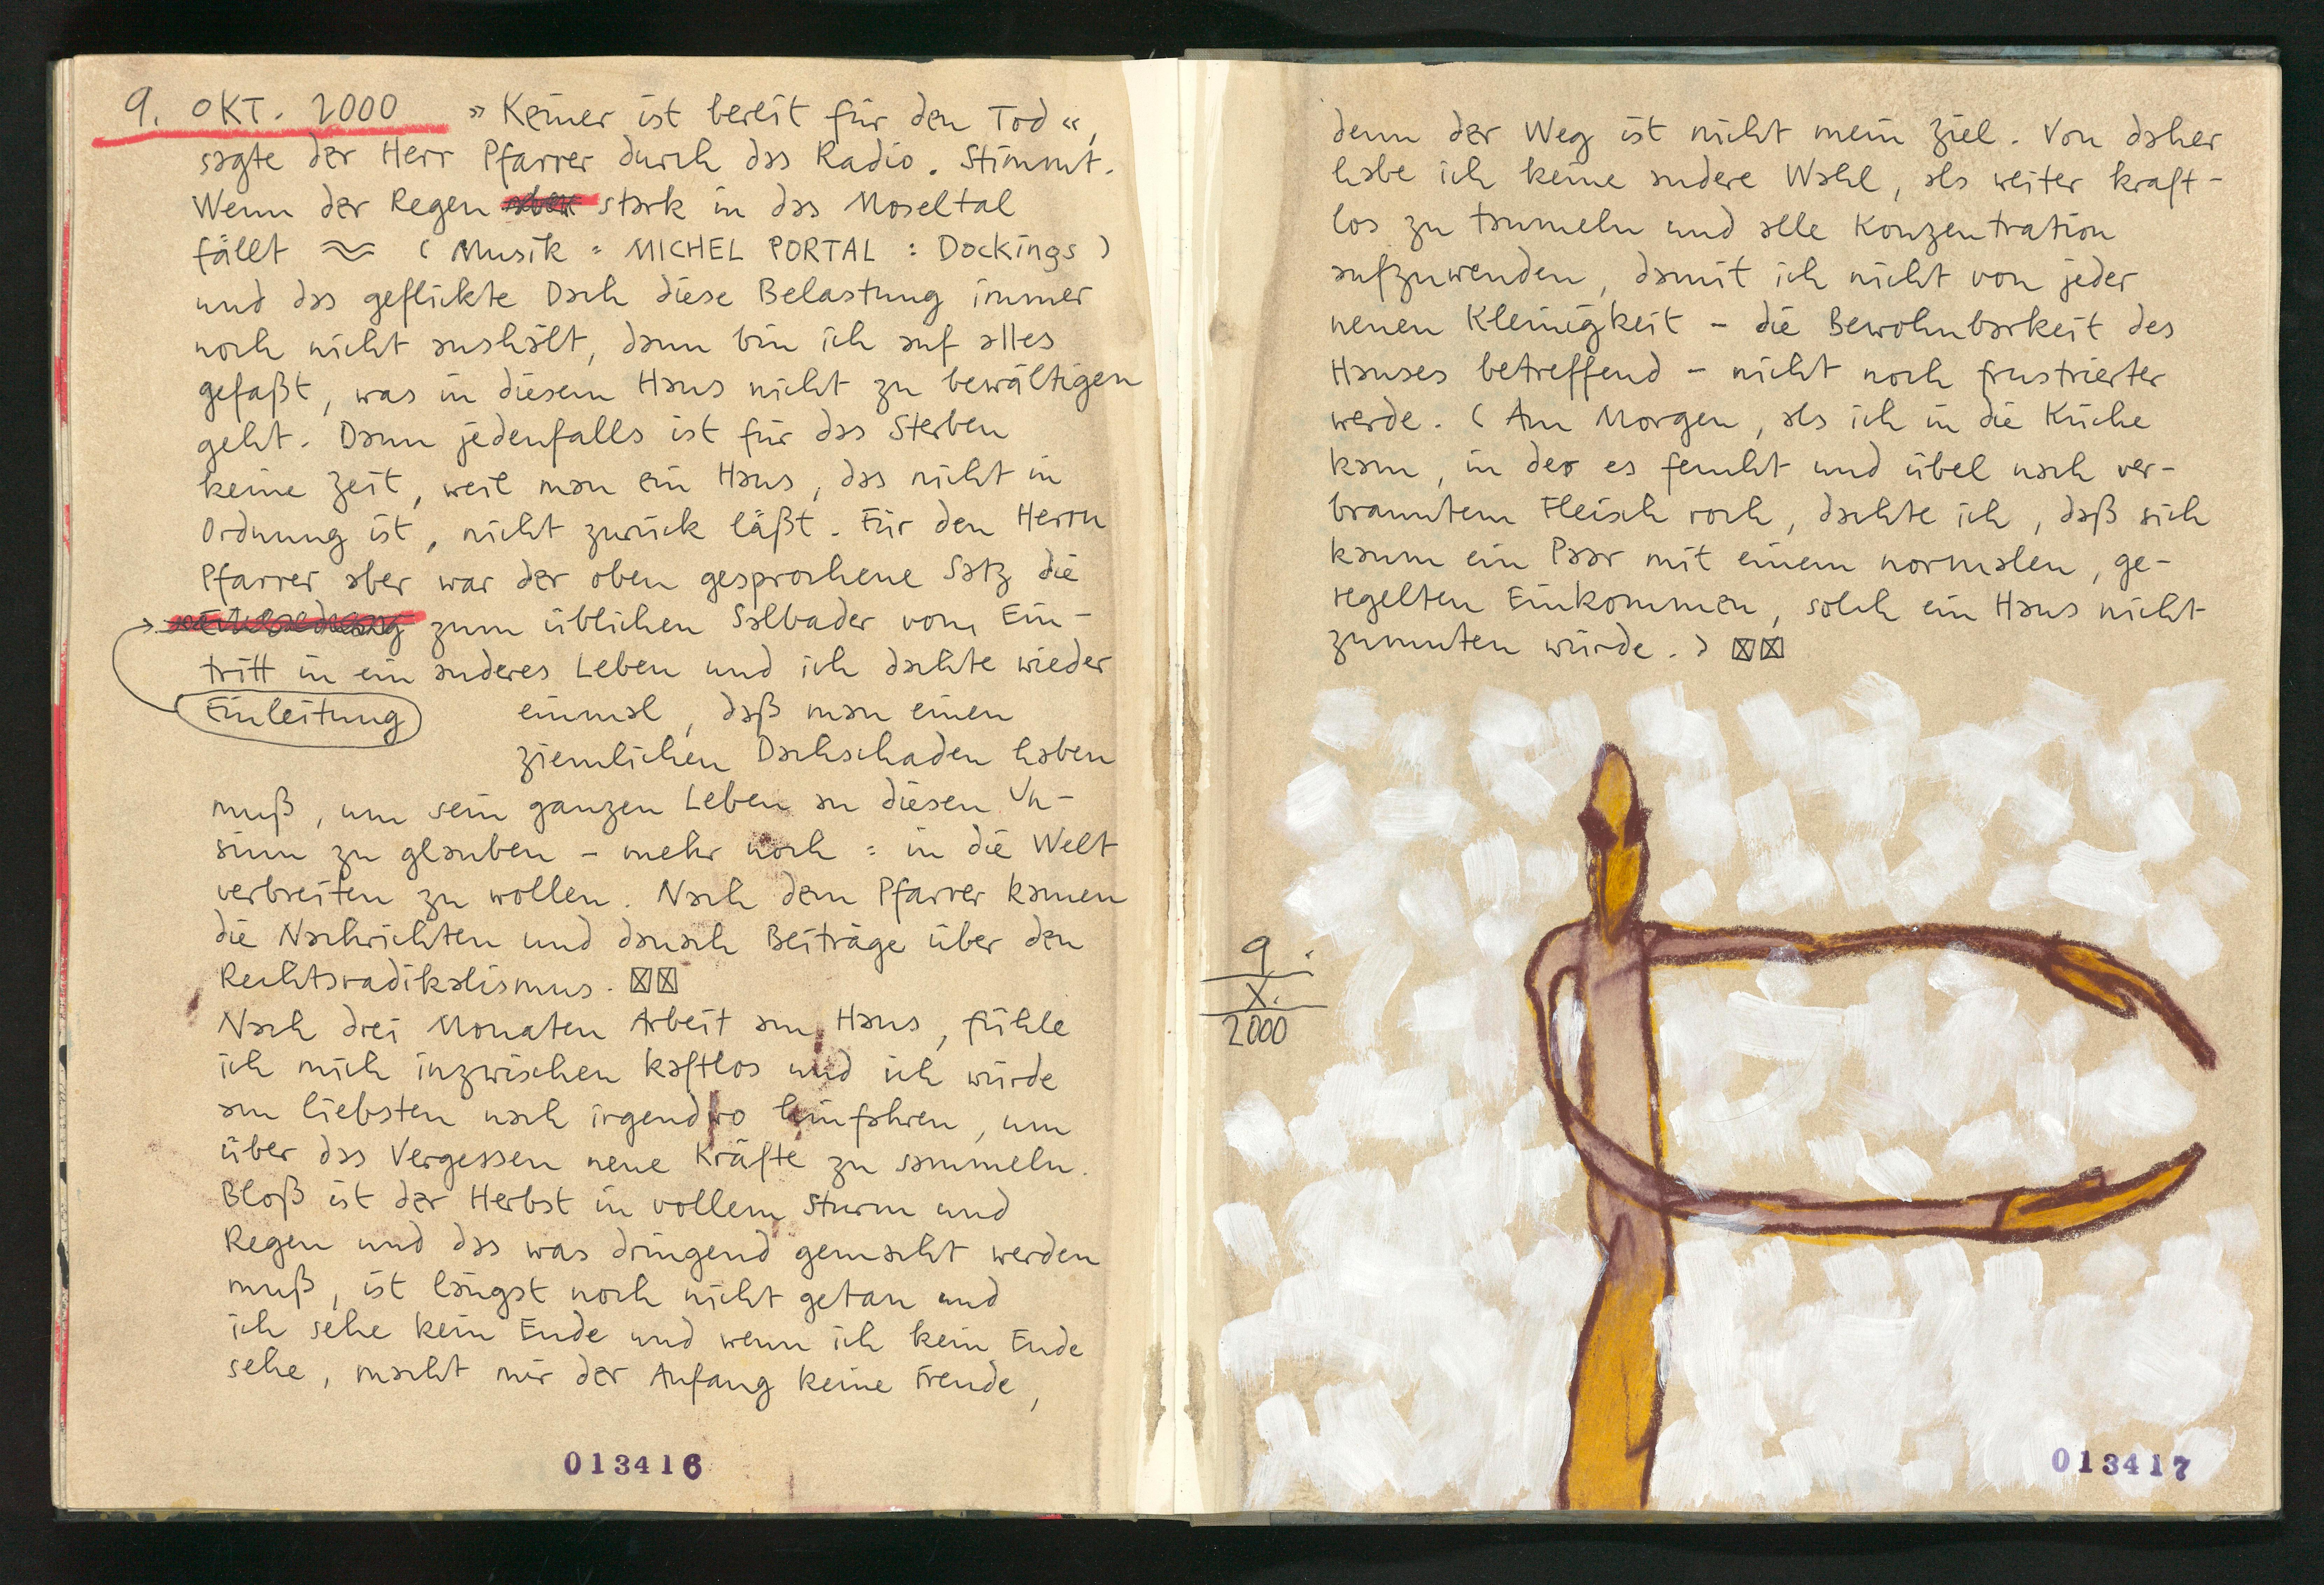 9. OKT. 2000 » Keiner ist bereit für den Tod «,
sagte der Herr Pfarrer durch das Radio. Stimmt.
Wenn der Regen aber stark in das Moseltal
fällt ≈ ( Musik : MICHEL PORTAL : Dockings )
und das geflickte Dach diese Belastung immer
noch nicht aushält, dann bin ich auf alles
gefaßt, was in diesem Haus nicht zu bewältigen
geht. Dann jedenfalls ist für das Sterben
keine Zeit, weil man ein Haus, das nicht in
Ordnung ist, nicht zurück läßt. Für den Herrn
Pfarrer aber war der oben gesprochene Satz die
zum üblichen Salbader vom Ein-
tritt in ein anderes Leben und ich dachte wieder
Einleitung einmal, daß man einen
ziemlichen Dachschaden haben
muß, um sein ganzen Leben an diesen Un-
sinn zu glauben - mehr noch : in die Welt
verbreiten zu wollen. Nach dem Pfarrer kamen
die Nachrichten und danach Beiträge über den
Rechtsradikalismus. ☒☒
Nach drei Monaten Arbeit am Haus, fühle
ich mich inzwischen kaftlos und ich würde
am liebsten nach irgendwo hinfahren, um
über das Vergessen neue Kräfte zu sammeln.
Bloß ist der Herbst in vollem Sturm und
Regen und das was dringend gemacht werden
muß, ist längst noch nicht getan und
ich sehe kein Ende und wenn ich kein Ende
sehe, macht mir der Anfang keine Freude,
013416
denn der Weg ist nicht mein Ziel. Von daher
habe ich keine andere Wahl, als weiter kraft-
los zu taumeln und alle Konzentration
aufzuwenden, damit ich nicht von jeder
neuen Kleinigkeit - die Bewohnbarkeit des
Hauses betreffend - nicht noch frustrierter
werde. ( Am Morgen, als ich in die Küche
kam, in der es feucht und übel nach ver-
branntem Fleisch roch, dachte ich, daß sich
kaum ein Paar mit einem normalen, ge-
regelten Einkommen, solch ein Haus nicht
zumuten würde. ) ☒☒
9.
X.
2000
013417